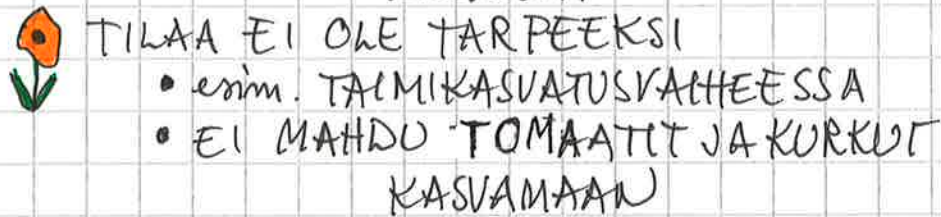 TILAA EI OLE TARPEEKSI
• esim. TAIMIKASVATUSVAIHEESSA
• EI MAHDU TOMAATIT JA KURKUT
KASVAMAAN